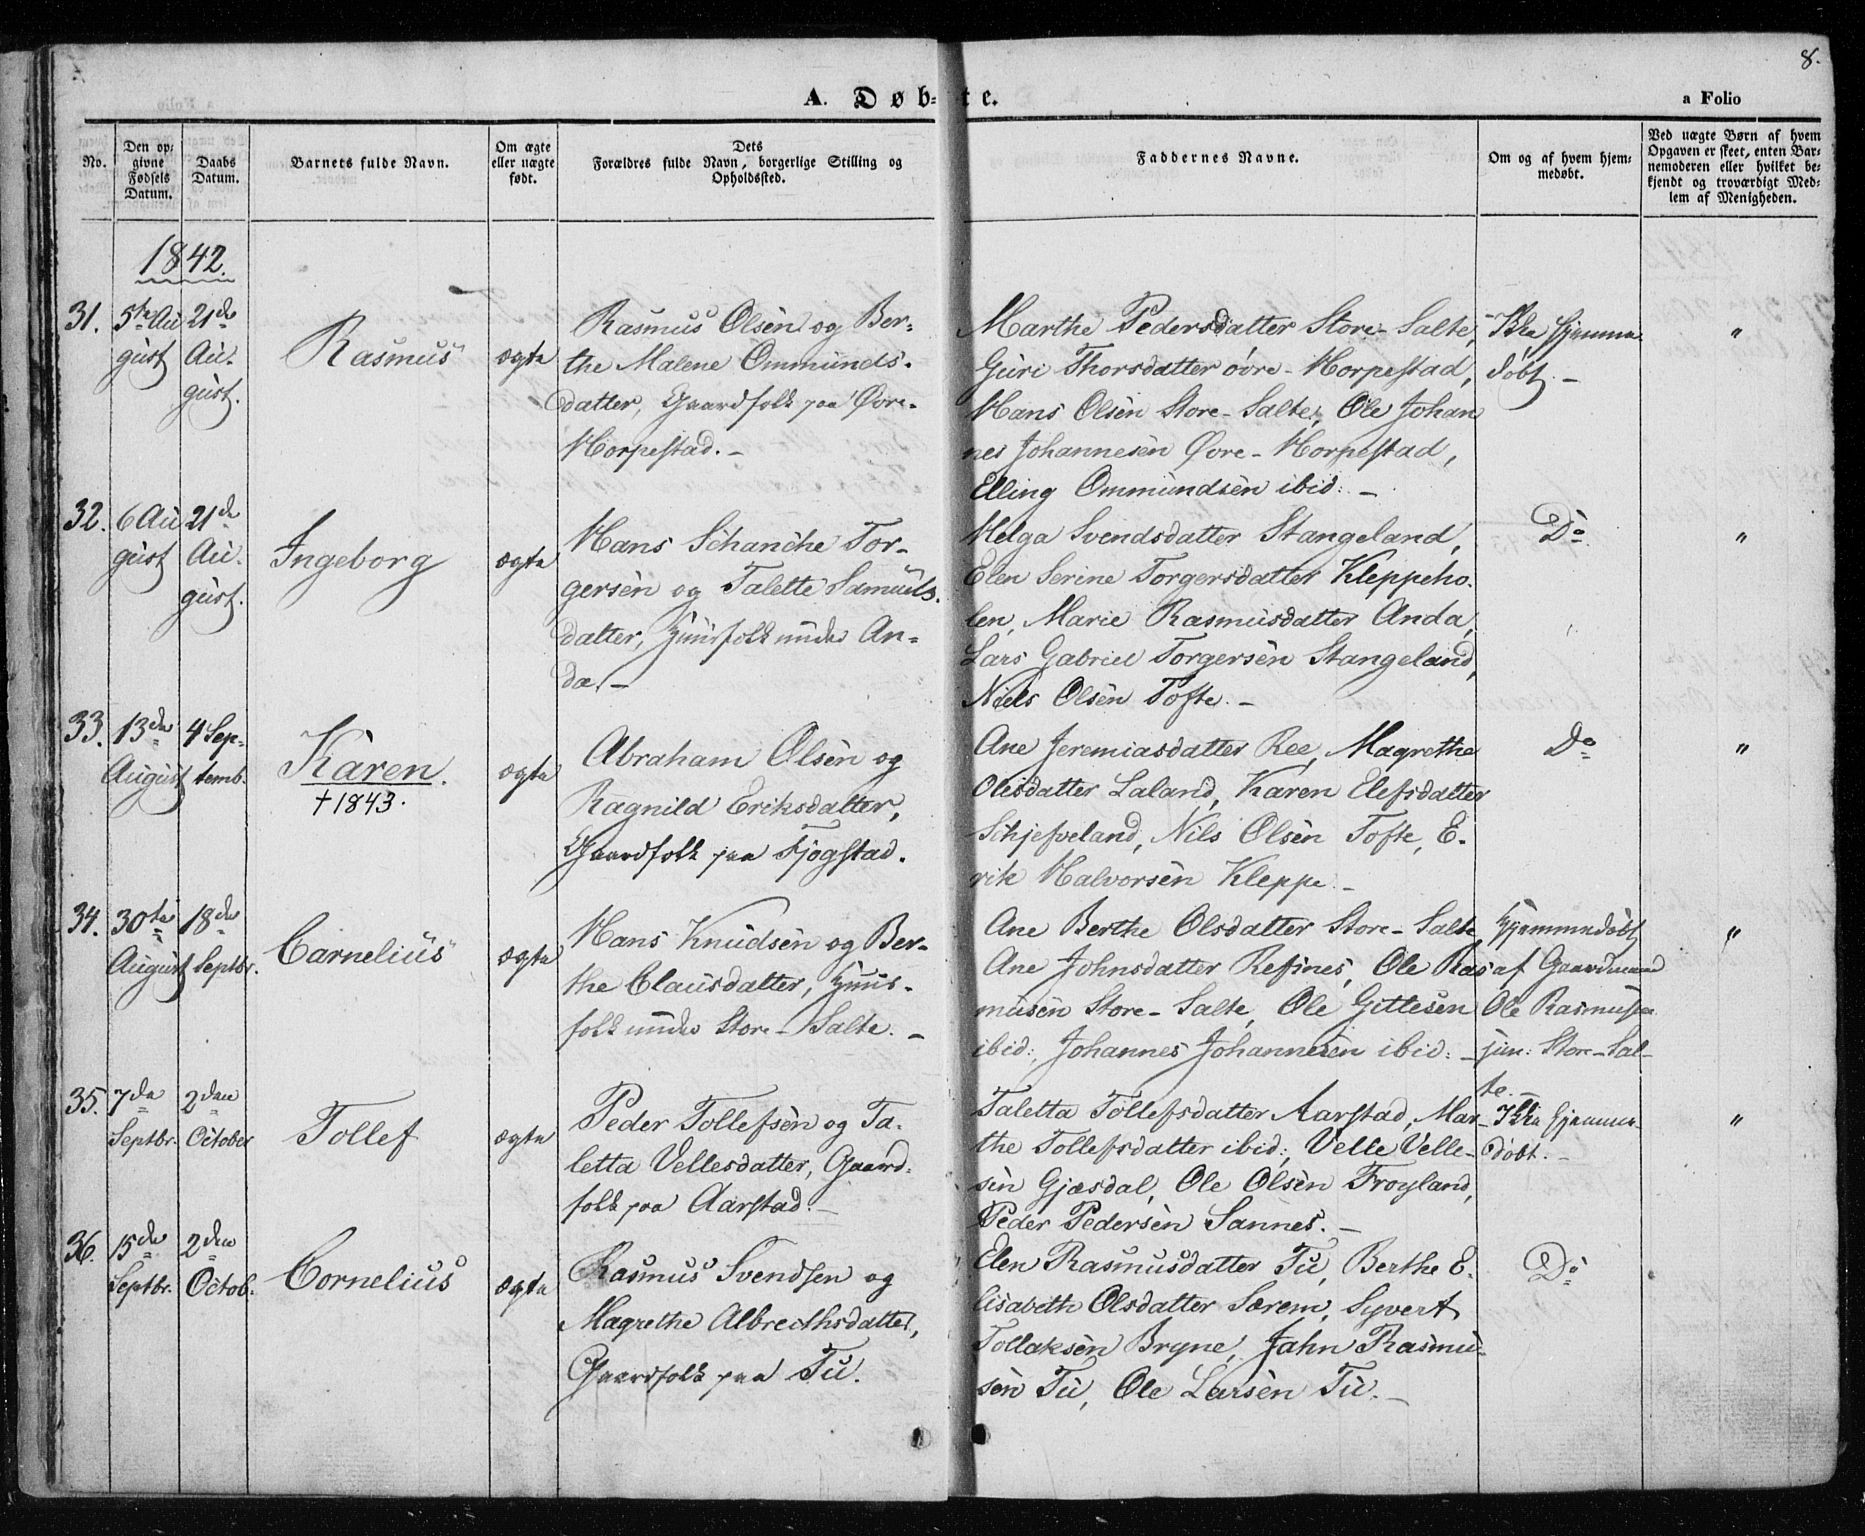 8.
A. Døb-te.
a Folio
No.
Den op-
givne
Fødsels
Datum.
Daabs
Datum.
Barnets fulde Navn.
Om ægte
eller uægte
født.
Dets
Forældres fulde Navn, borgerlige Stilling og
Opholdssted.
Faddernes Navne.
Om og af hvem hjem-
medøbt.
Ved uægte Børn af hvem
Opgaven er skeet, enten Bar-
nemoderen eller hvilket be-
kjendt og troværdigt Med-
lem af Menigheden.
1842.
31.
5te Au
gust
21de
Au-
gust.
Rasmus
ægte
Rasmus Olsen og Ber-
the Malene Ommunds-
datter, Gaardfolk paa Øvre-
Horpestad. -
Marthe Pedersdatter Store-Salte,
Guri Thorsdatter øvre-Horpestad,
Hans Olsen Store-Salte, Ole Johan
nes Johannesen Øvre-Horpestad,
Elling Ommundsen ibid: -
Ikke hjemme
døbt. -
"
32.
6 Au
gust
21de
Au-
gust.
Ingeborg
ægte
Hans Schanche Tor-
gersen og Talette Samuels-
datter, Huusfolk under An-
da. -
Helga Svendsdatter Stangeland,
Elen Serine Torgersdatter Kleppeho-
len, Marie Rasmusdatter Anda,
Lars Gabriel Torgersen Stangeland,
Niels Olsen Tofte. -
Do
"
33.
13de
August
4 Sep-
temb.
Karen.
† 1843.
ægte
Abraham Olsen og
Ragnild Eriksdatter,
Gaardfolk paa Fjogstad.
Ane Jeremiasdatter Ree, Magrethe
Olisdatter Laland, Karen Elefsdatter
Schjefveland, Nils Olsen Tofte, E-
rik Halvorsen Kleppe. -
Do
"
34.
30te
August
18de
Septbr.
Carnelius
ægte
Hans Knudsen og Ber-
the Clausdatter, Huus-
folk under Store-Salte. -
Ane Berthe Olsdatter Store-Salte
Ane Johnsdatter Refsnes, Ole Ras
musen Store-Salte, Ole Gittesen
ibid:, Johannes Johannesen ibid: -
Hjemmedøbt
af Gaardmand
Ole Rasmusen
jun: Store-Sal-
te. -
"
35.
7de
Septbr.
2den
October
Tollef
ægte
Peder Tollefsen og Ta-
letta Vellesdatter, Gaard-
folk paa Aarstad. -
Taletta Tollefsdatter Aarstad, Mar-
the Tollefsdatter ibid:, Velle Velle-
sen Gjæsdal, Ole Olsen Froyland,
Peder Pedersen Sannes. -
Ikke hjemme-
døbt. -
"
36.
15de
Septbr.
2den
Octob.
Cornelius
ægte
Rasmus Svendsen og
Magrethe Albrecthsdatter,
Gaardfolk paa Tu.
Elen Rasmusdatter Tu, Berthe E-
lisabeth Olsdatter Særem, Syvert
Tollaksen Bryne, Jahn Rasmu-
sen Tu, Ole Larsen Tu. -
Do